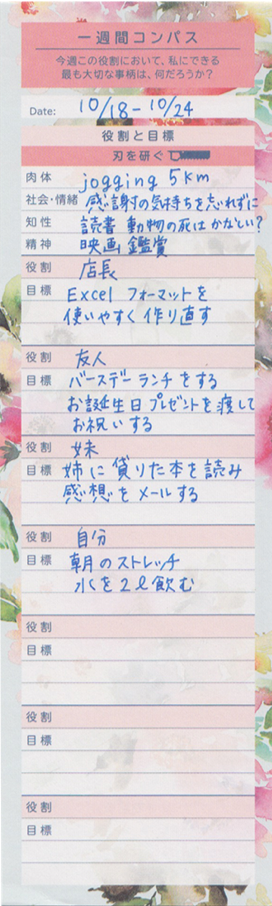 一週間コンパス
今週この役割において、私にできる
最も大切な事柄は、何だろうか？
Date: 10/18-10/24
役割と目標
刃を研ぐ
肉体 jogging 5km
社会・情緒 感謝の気持ちを忘れずに
知性 読書 動物の死はかなしい?
精神 映画鑑賞
役割 店長
目標 Excel フォーマットを
使いやすく作り直す
役割 友人
目標 バースデーランチをする
お誕生日プレゼントを渡して
お祝いする
役割 妹
目標 姉に借りた本を読み
感想をメールする
役割 自分
目標 朝のストレッチ
水を2ℓ飲む
役割
目標
役割
目標
役割
目標